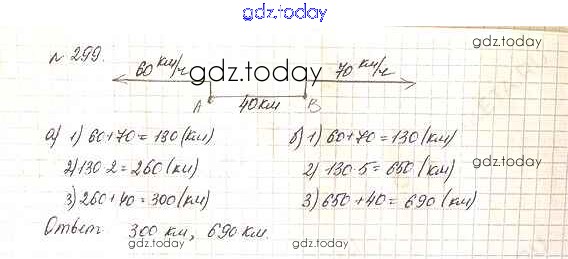 gdz.today
gdz.today
№ 299.
60 км/ч 70 км/ч
gdz.today
А 40 км В
а) 1) 60+70 = 130 (км) б) 1) 60+70 = 130 (км)
2) 130·2 = 260 (км) 2) 130·5 = 650 (км)
gdz.today
3) 260+40 = 300 (км) 3) 650+40 = 690 (км)
Ответ 300 км, 690 км.
gdz.today gdz.today